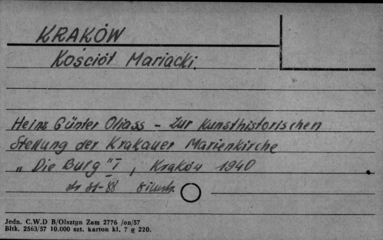 KRAKÓW
Kościół Mariacki.
Heinz Günter Oliass - Zur Kunsthistorischen
Stellung der Krakauer Marienkirche
"Die Burg" I, Kraków 1940
str 81-88
Jedn. C.W.D B/Olsztyn Zam 2776 /on/57
Bltk. 2563/57 10.000 szt. karton kl. 7 g 220.